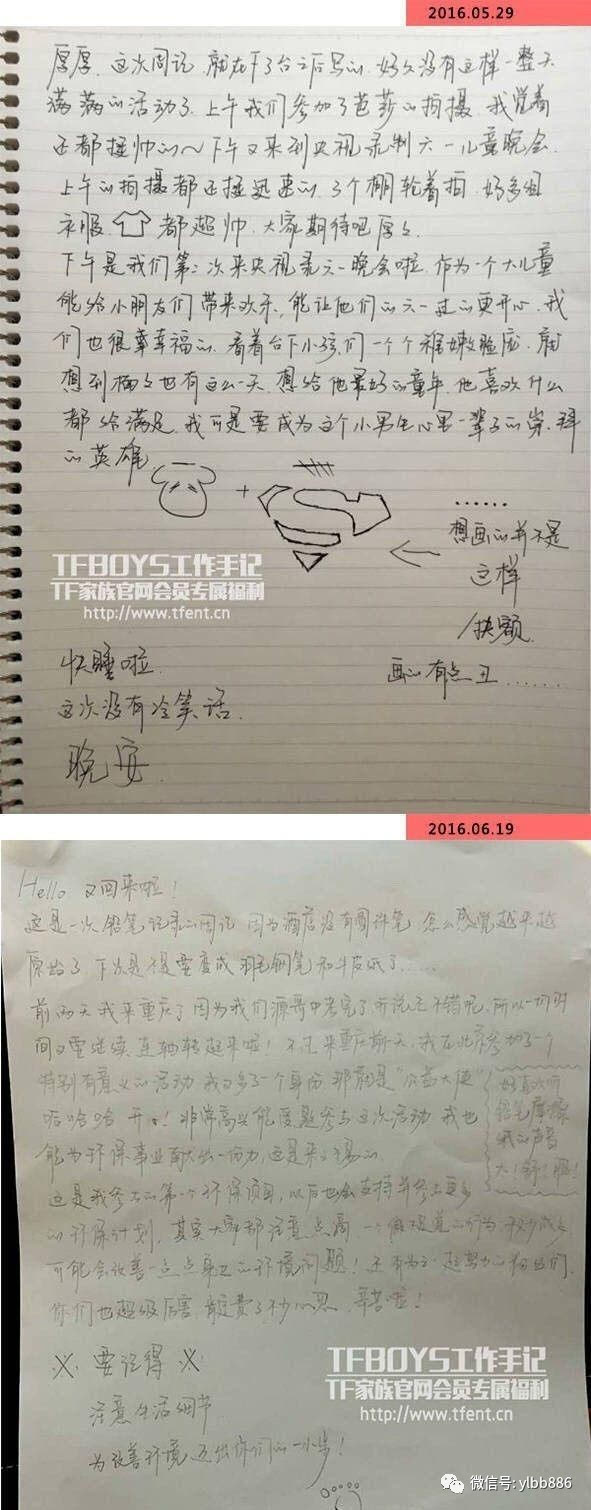 2016.05.29
厚厚。这次周记 就在下了台之后写的。好久没有这样一整天
满满的活动了。上午我们参加了芭莎的拍摄。我觉着
还都挺帅的～下午又来到央视录制六一儿童晚会。
上午的拍摄都还挺迅速的。3个棚轮着拍。好多组
衣服。都超帅。大家期待吧厚厚。
下午是我们第二次来央视录六一晚会啦。作为一个大儿童
能给小朋友们带来欢乐。能让他们的六一过的更开心。我
们也很幸幸福的。看着台下小孩们一个个稚嫩脸庞。就
想到楠楠也有这么一天。想给他最好的童年。他喜欢什么
都给满足。我可是要成为这个小男生心里一辈子的崇拜
的英雄
+
S
......
想画的并不是
这样
/抉额
画的有点丑......
TFBOYS工作手记
TF家族官网会员专属福利
http://www.tfent.cn
快睡啦。
这次没有冷笑话。
晚安。
2016.06.19
Hello 又回来啦！
这是一次铅笔记录的周记 因为酒店没有圆珠笔。怎么感觉越来越
原始了 下次是不是要变成羽毛钢笔和牛皮纸了......
前两天我来重庆了因为我们源哥中考完了。听说还不错呢。所以一切时
间又要继续连轴转起来啦！不过来重庆前天。我在北京参加了一个
特别有意义的活动 我又多了一个身份 那就是“公益大使”
哈哈哈 开心！非常高兴能受邀参与这次活动 我也
能为环保事业献出一份力。这是来之不易的
好喜欢听
铅笔摩擦
纸的声音
大！舒！服！
这是我参与的第一个环保项目，以后也会支持并参与更多
的环保计划。其实大家都注意一点点 一个微不足道的行为 积少成多
可能会改善一点点身边的环境问题！还有为之一起努力的粉丝们。
你们也超级厉害。肯定费了不少心思。辛苦啦！
※ 要记得 ※
注意生活细节
为改善环境迈出你们的一小步！
TFBOYS工作手记
TF家族官网会员专属福利
http://www.tfent.cn
微信号: ylbb886